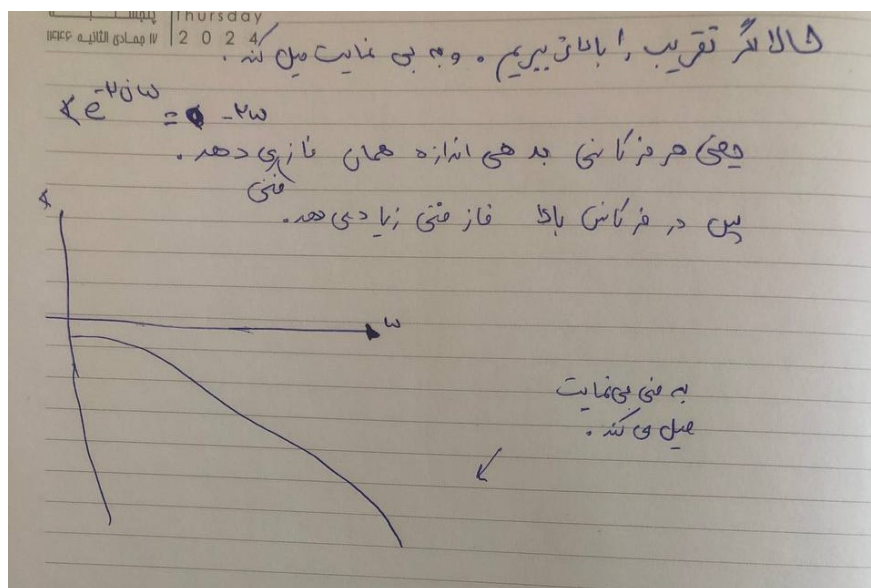 Thursday
۱۷ جمادی الثانیه ۱۴۴۶ 2 0 2 4
حالا اگر تقریب را بالاتر ببریم . و به بی نهایت میل کند .
∢ e^-۲jω = -۲ω
یعنی هر فرکانسی بدهی اندازه همان فاز می دهد .
منفی
پس در فرکانس بالا فاز منفی زیاد می دهد.
∢
ω
به منفی بی نهایت
میل می کند .